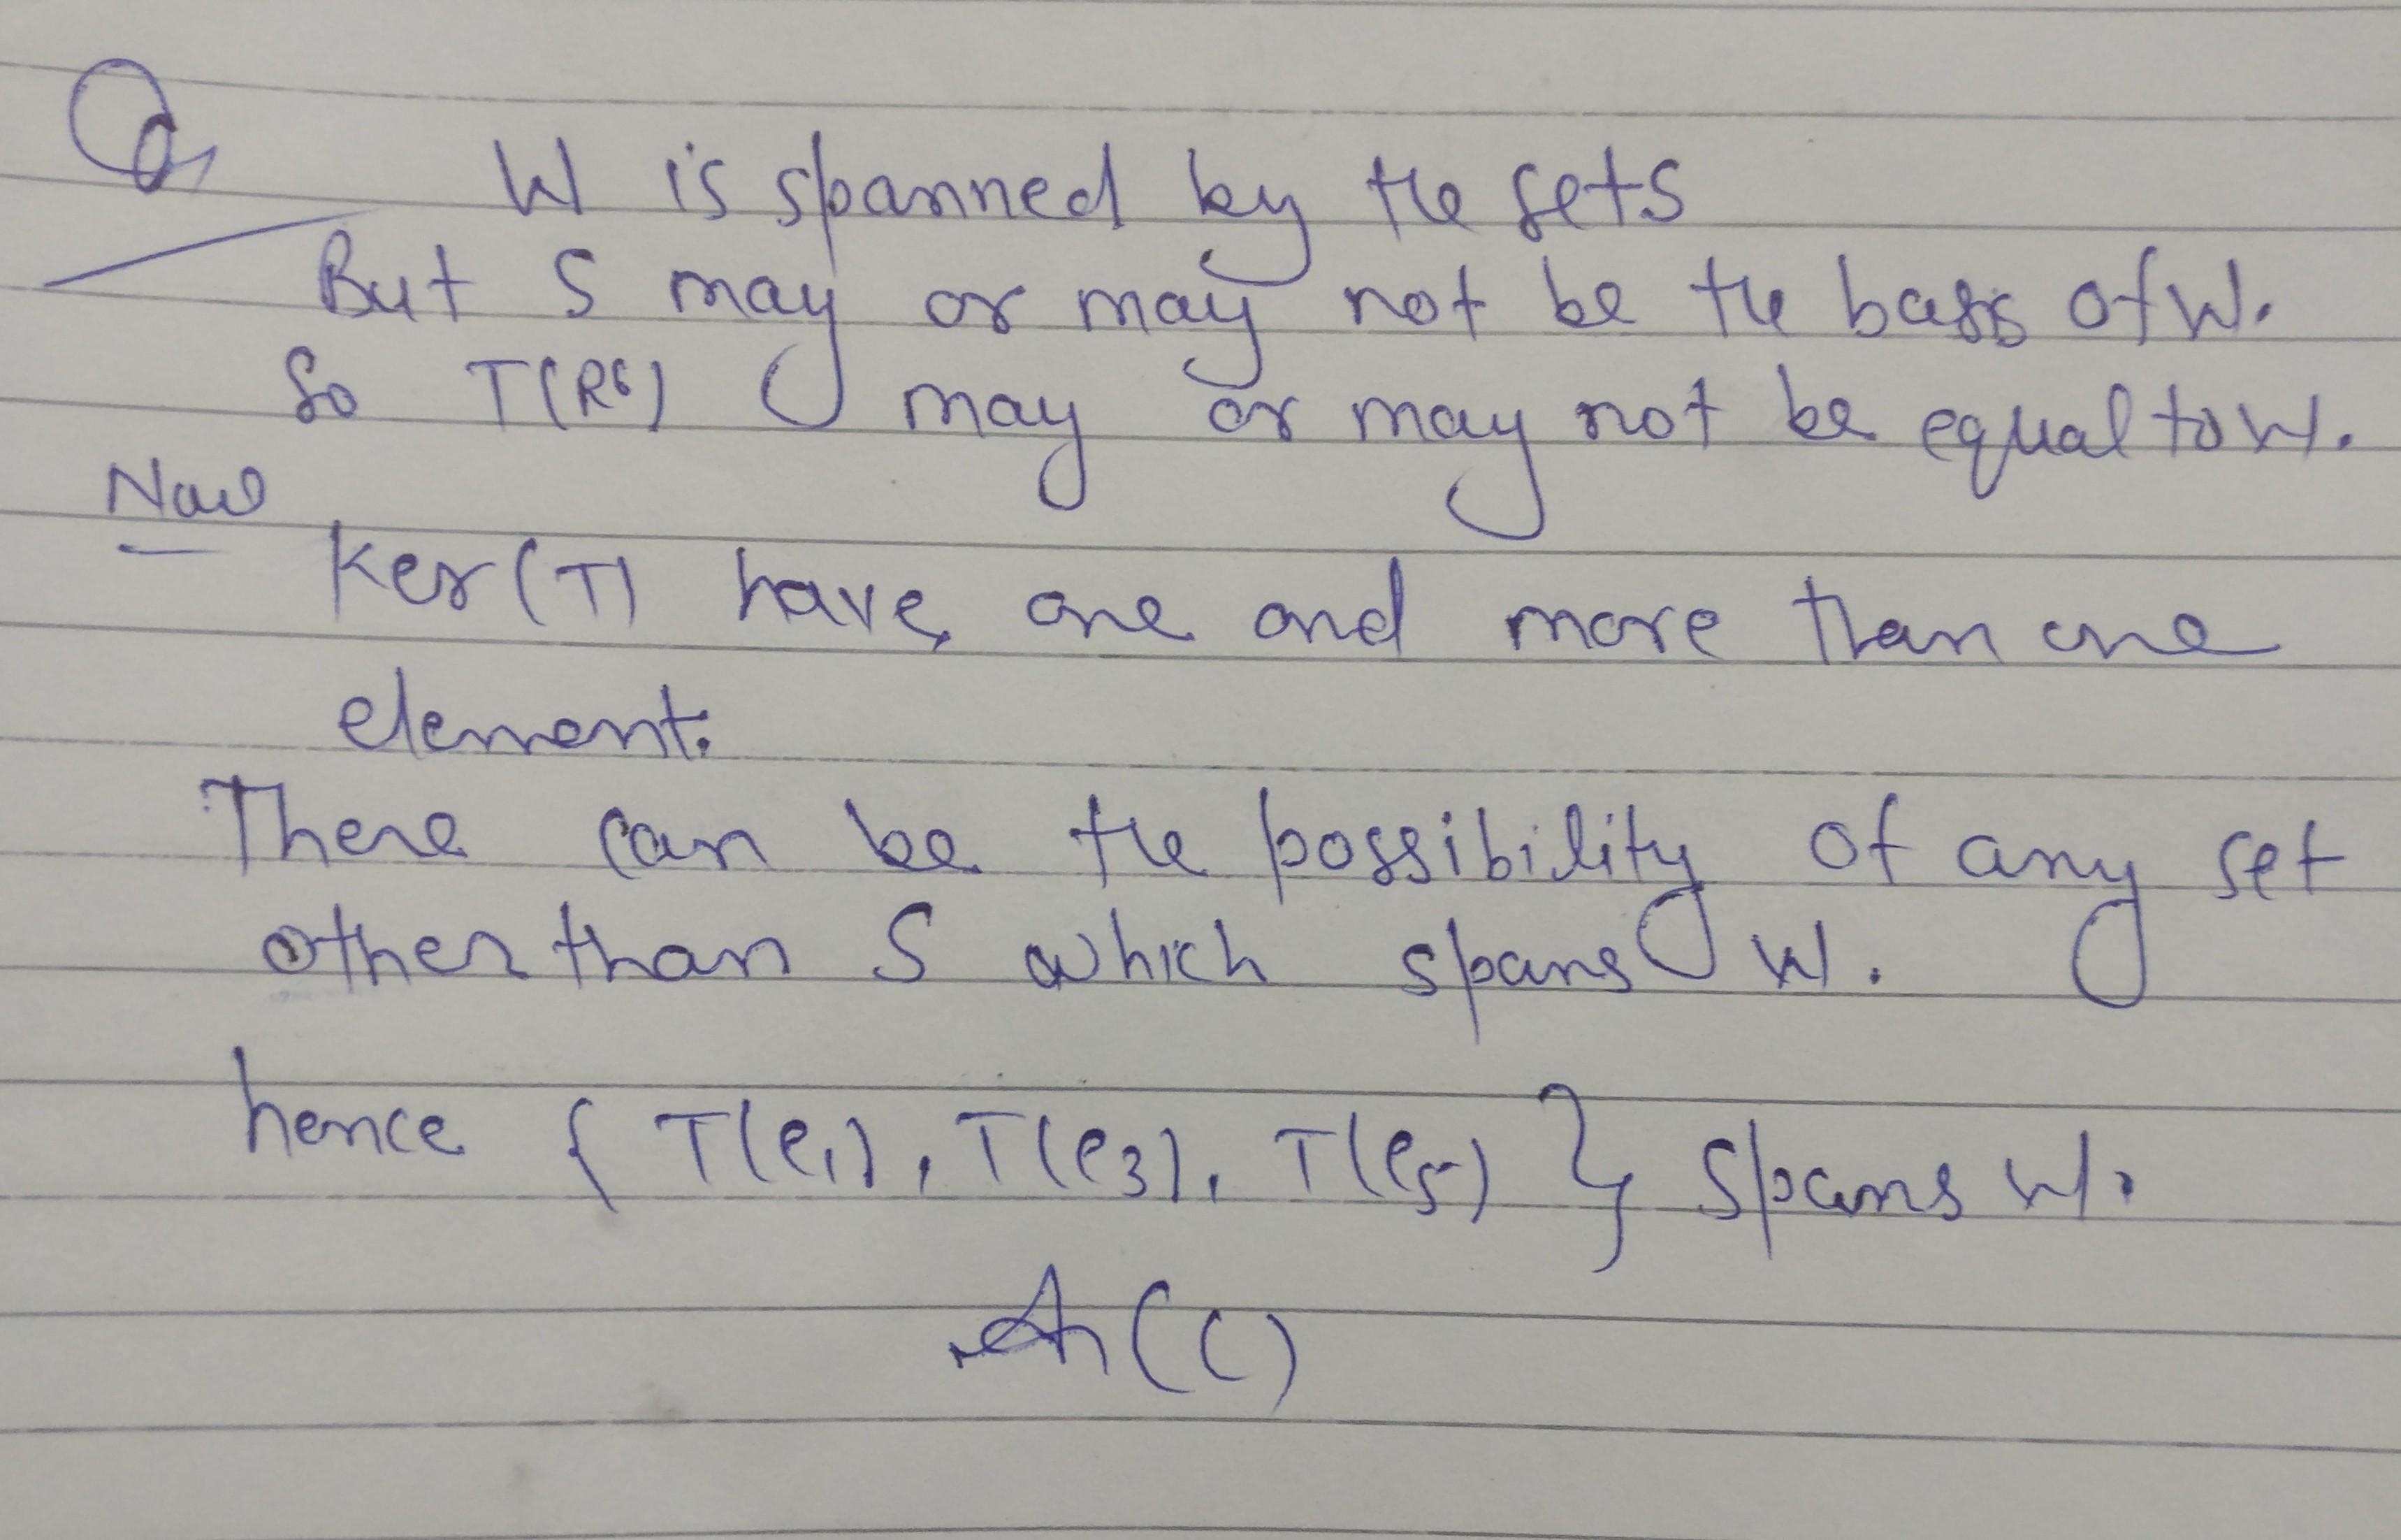 Q
W is spanned by the sets
But S may or may not be the basis of W.
So T(R⁶) may or may not be equal to W.
Now
Ker(T) have, one and more than one
element.
There can be the possibility of any set
other than S which spans W.
hence { T(e₁), T(e₃), T(e₅) } spans W.
An (C)